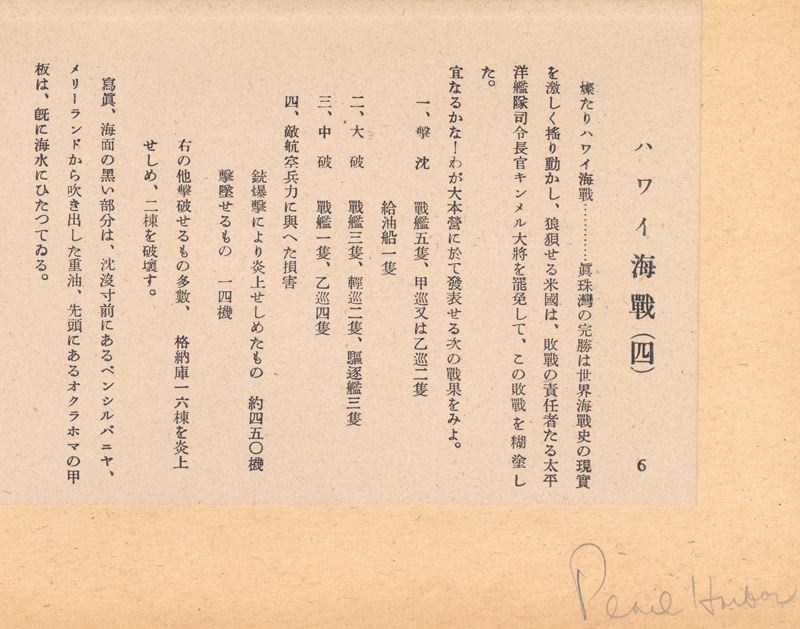 ハワイ海戰(四)　6
燦たりハワイ海戰…………眞珠灣の完勝は世界海戰史の現實
を激しく搖り動かし、狼狽せる米國は、敗戰の責任者たる太平
洋艦隊司令長官キンメル大將を罷免して、この敗戰を糊塗し
た。
宜なるかな！わが大本營に於て發表せる次の戰果をみよ。
一、擊　沈　　戰艦五隻、甲巡又は乙巡二隻
給油船一隻
二、大　破　　戰艦三隻、輕巡二隻、驅逐艦三隻
三、中　破　　戰艦一隻、乙巡四隻
四、敵航空兵力に與へた損害
銃爆擊により炎上せしめたもの　約四五〇機
擊墜せるもの　一四機
右の他擊破せるもの多數、　格納庫一六棟を炎上
せしめ、二棟を破壞す。
寫眞、海面の黑い部分は、沈沒寸前にあるペンシルバニヤ、
メリーランドから吹き出した重油、先頭にあるオクラホマの甲
板は、旣に海水にひたつてゐる。
Pearl Harbor